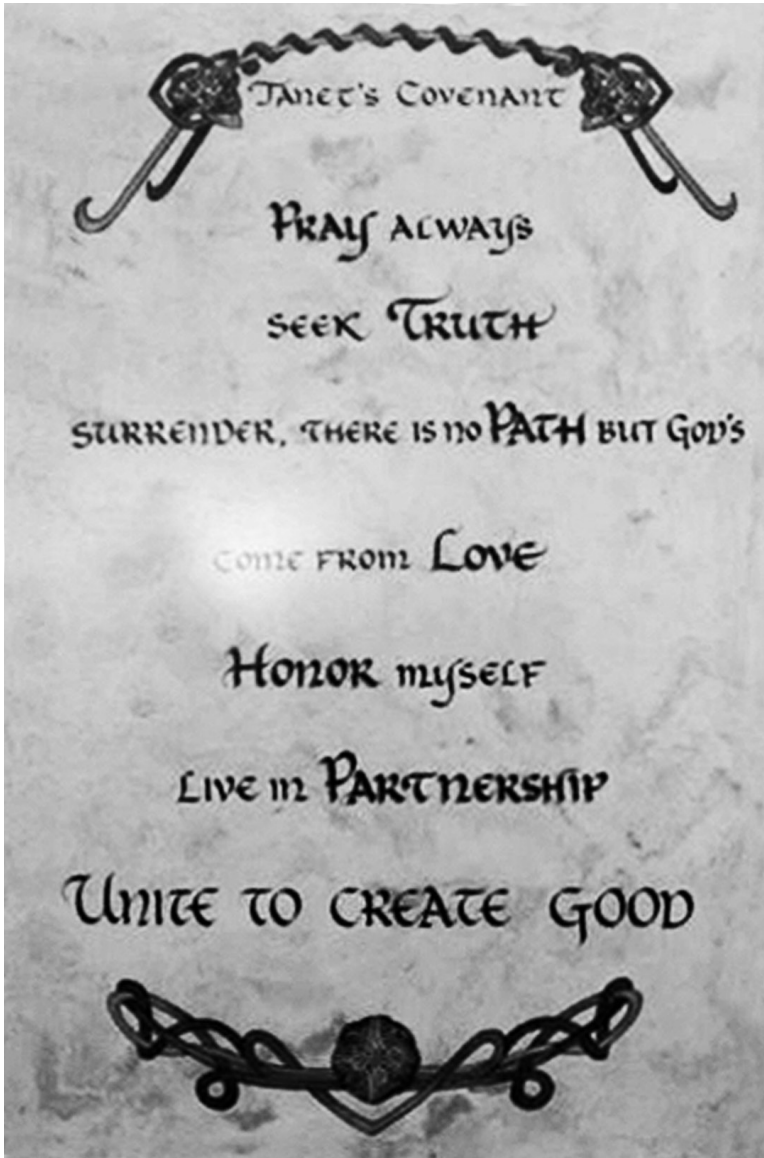 Janet's Covenant
Pray always
seek Truth
surrender, there is no Path but God's
come from Love
Honor myself
Live in Partnership
Unite to create good